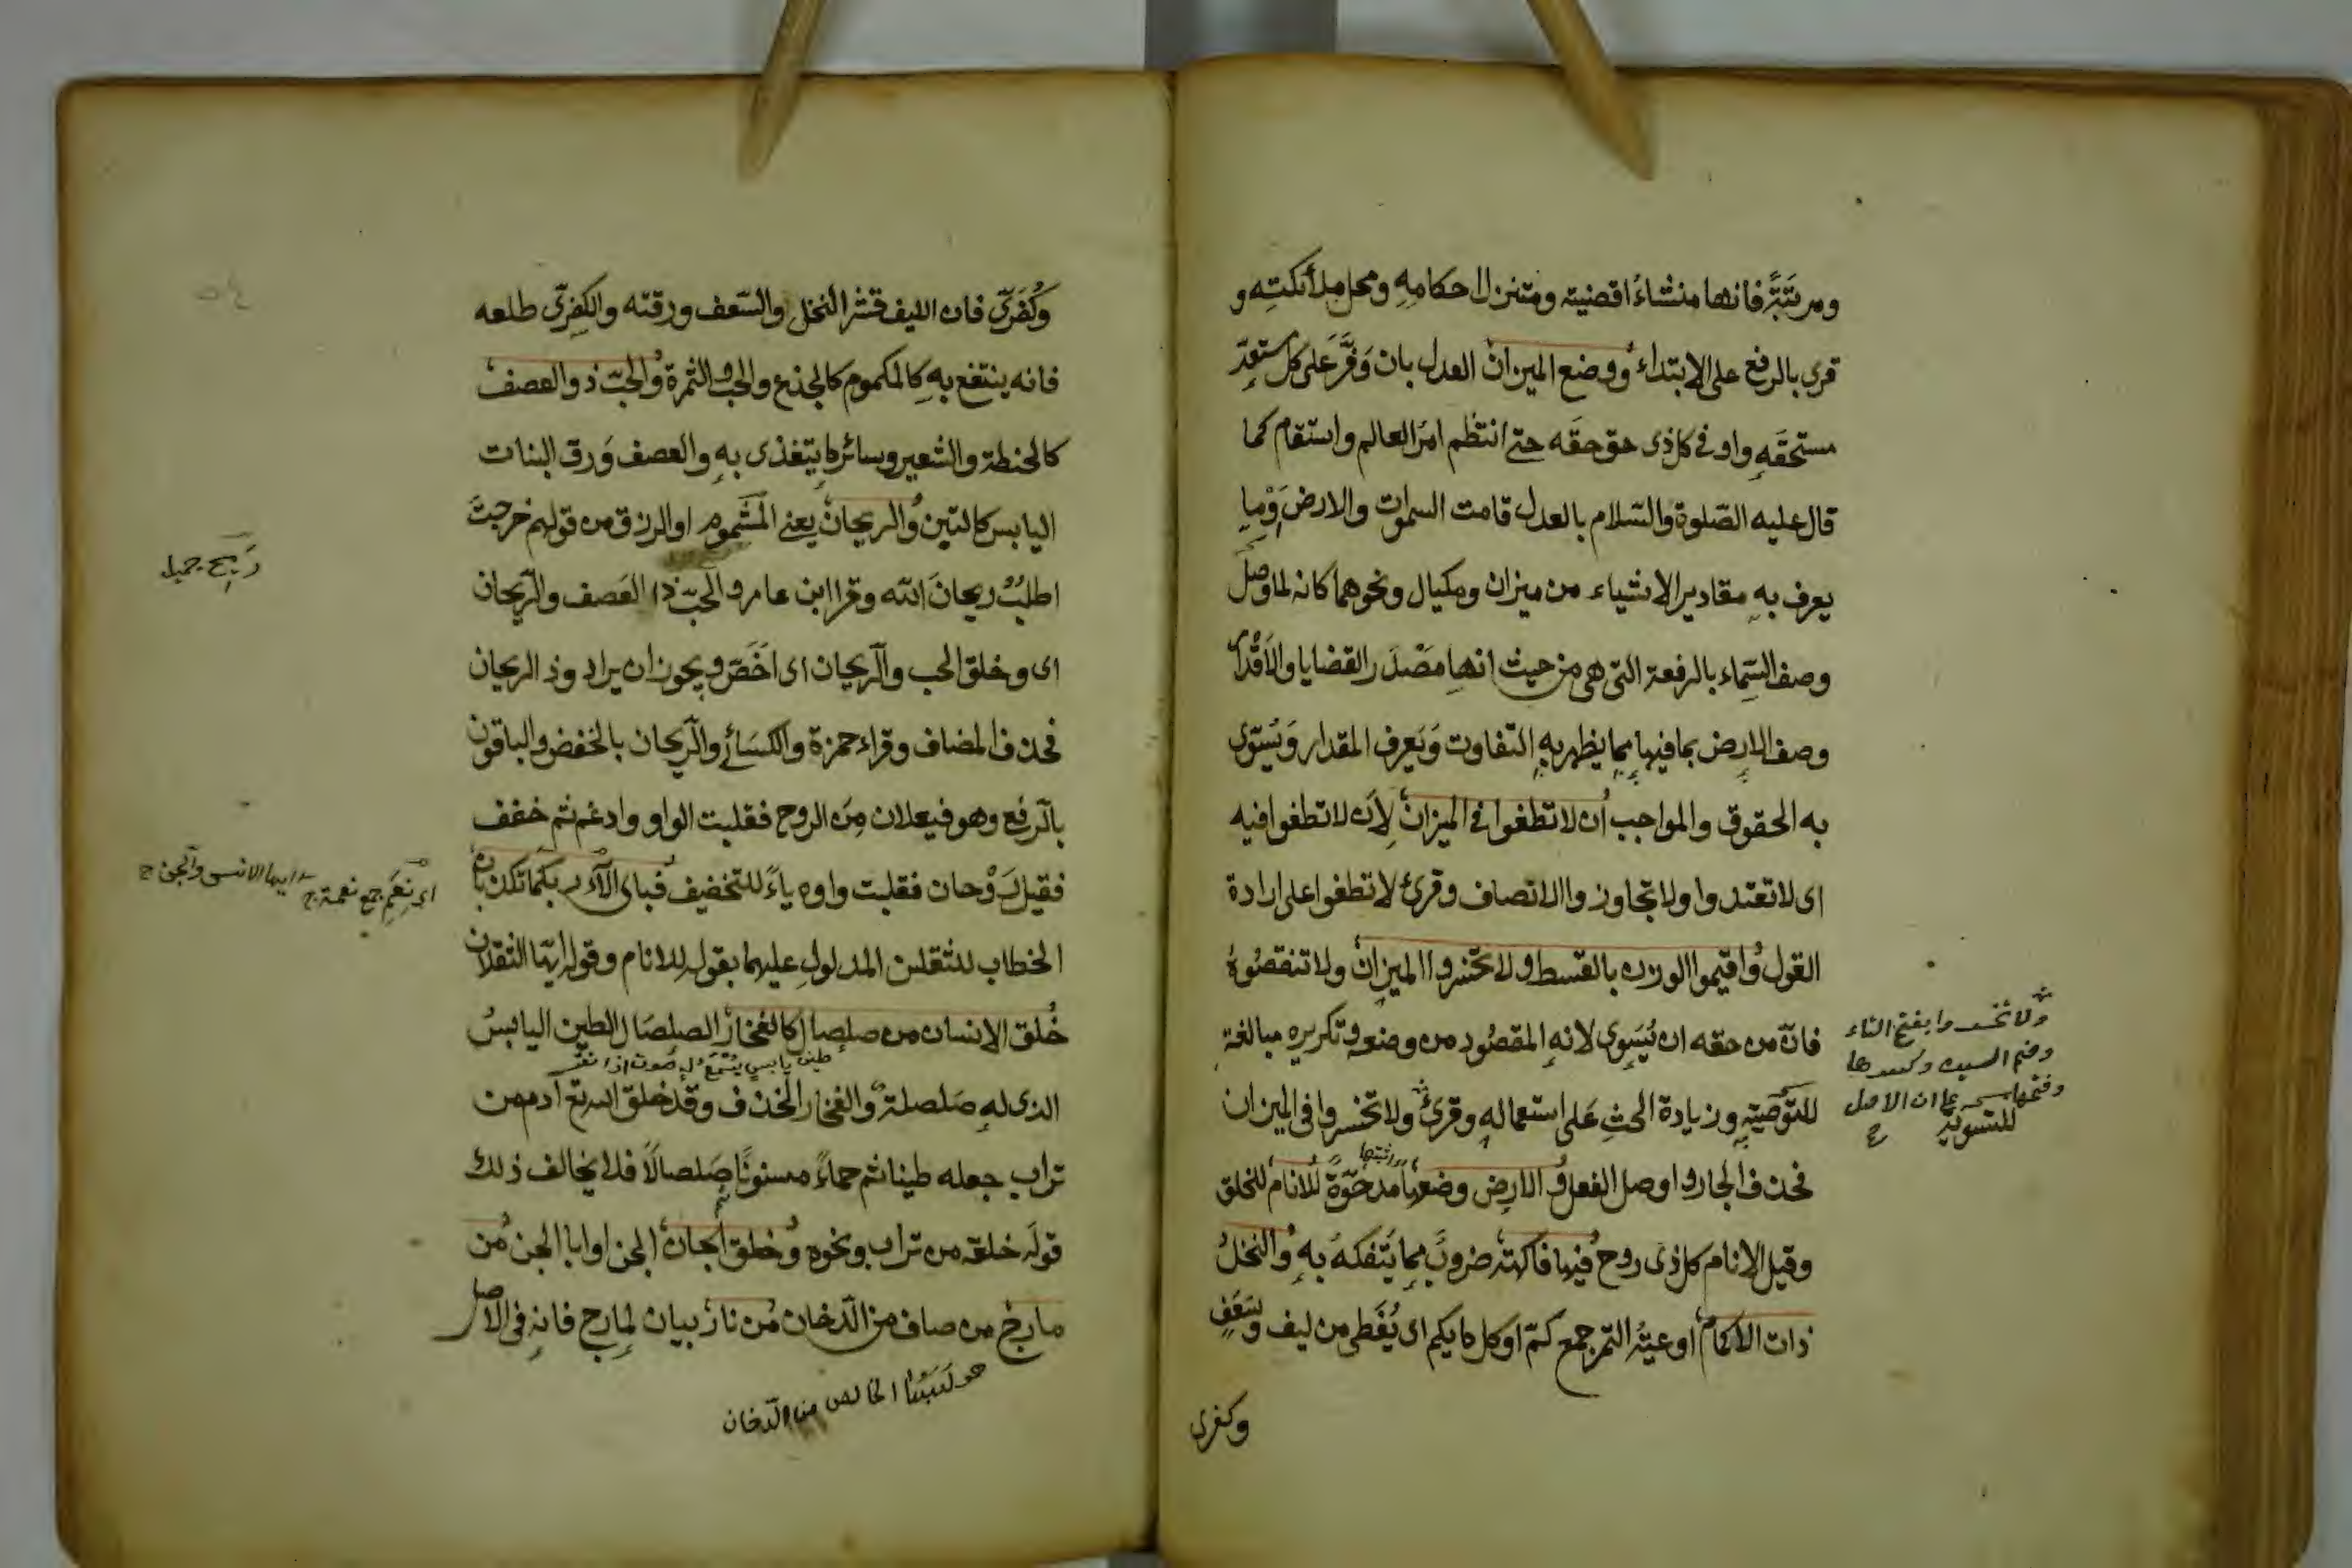 ومرتبة فانها منشاء اقضيته ومتنزل احكامه ومحل ملائكته و
قرى بالرفع على الابتداء ووضع الميزان العدل بان وَفَّرَ على كل مستعدّ
مستحقه واوفى كل ذى حق حقه حتى انتظم امر العالم واستقام كما
قال عليه الصلوة والسلام بالعدل قامت السموات والارض وْما
يعرف به مقادير الاشياء من ميزان ومكيال ونحوهما كانه لما وصف
وصف السماء بالرفعة التى هى من حيث انها مصدر القضايا والاقدار
وصف الارض بما فيها بما يظهر به التفاوت ويعرف المقدار ويُسَوّى
به الحقوق والمواجب أن لا تطغوا فى الميزان لأن لا تطغوا فيه
اى لا تعتدوا ولا تجاوزوا الانصاف وقرئ لا تطغوا على ارادة
القول واقيموا الوزن بالقسط ولا تخسروا الميزان ولا تنقصوه
فانّ من حقه ان يُسَوى لانه المقصود من وضعه وتكريره مبالغة
للتوصية وزيادة الحث على استعماله وقرئ ولا تخسروا فى الميزان
فحذف الجار واوصل الفعل والارض وضعها مدحوّة للانام للخلق
وقيل الانام كل ذى روح فيها فاكهة ضروب مما يتفكه به والنخل
ذات الاكمام اوعية التمر جمع كمّ او كل ما يكم اى يُغَطى من ليف وسَعَفٍ
وكفرى
ولا تخسروا بفتح التاء
وضم السين وكسرها
وفتحها على ان الاصل
وكُفَرّى فان الليف قشر النخل والسّعف ورقته والكفرّى طلعه
فانه ينتفع به كالمكموم كالجذع والجب والثمرة والحَبّ ذو العصف
كالحنطة والشعير وسائر ما يتغذى به والعصف وَرق النبات
اليابس كالتين والريحان يعنى المشموم او الرزق من قولهم خرجت
اطلبُ ريحانَ الله وقرا ابن عامر والحَبّ ذا العَصف والرّيحان
اى وخلق الحب والرّيحان اى اَخَصّ ويجوز ان يراد وذ الريحان
فحذف المضاف وقراء حمزة والكسائى والرّيحان بالخفض والباقون
بالرّفع وهو فيعلان مِن الروح فقلبت الواو وادغم ثم خفف
فقيل رَوْحان فقلبت واوه ياءً للتخفيف فباى آلاء ربكما تكذبان
الخطاب للثقلين المدلول عليهما بقوله للانام وقوله ايّها الثقلان
خُلق الانسان من صلصال كالفخار الصلصال الطين اليابسُ
طين يابس يُسْمَع له صوت اذا نقر
الذى له صَلصلة والفخار الخذف وقد خلق الله تع آدم من
تراب جعله طينا ثم حماءً مسنونًا ثم صَلصالًا فلا يخالف ذلك
قوله خلقه من تراب ونحوه وخلق الجان الجن او ابا الجن من
مارج من صاف من الدّخان من نار بيان لمارج فانه فى الاصل
الخالص من الدّخان
اى نِعَم جمع نعمة ايها الانسى والجن